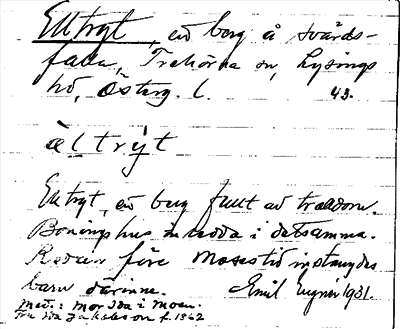 Elltryt, ed berg å svärds-
fada, Trehörna sn, Lysings
hd, Österg. l. 43.
èl trýt
Elltryt, ed berg fullt av trolldom.
Boningshus inredda i detsamma.
Redan före Mosestid instängdes
barn därinne. Emil Eugner 1931.
Med.: Mor Ida i Moen.
Fru Ida Jakobsson f. 1862